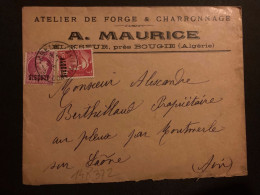 ATELIER DE FORGE & CHARRONNAGE
A. MAURICE
EL-KSEUR, près BOUGIE (Algérie)
Monsieur Alexandre
Berthaillard Propriétaire
au pleux par Montmerle
sur Saône
(Ain)